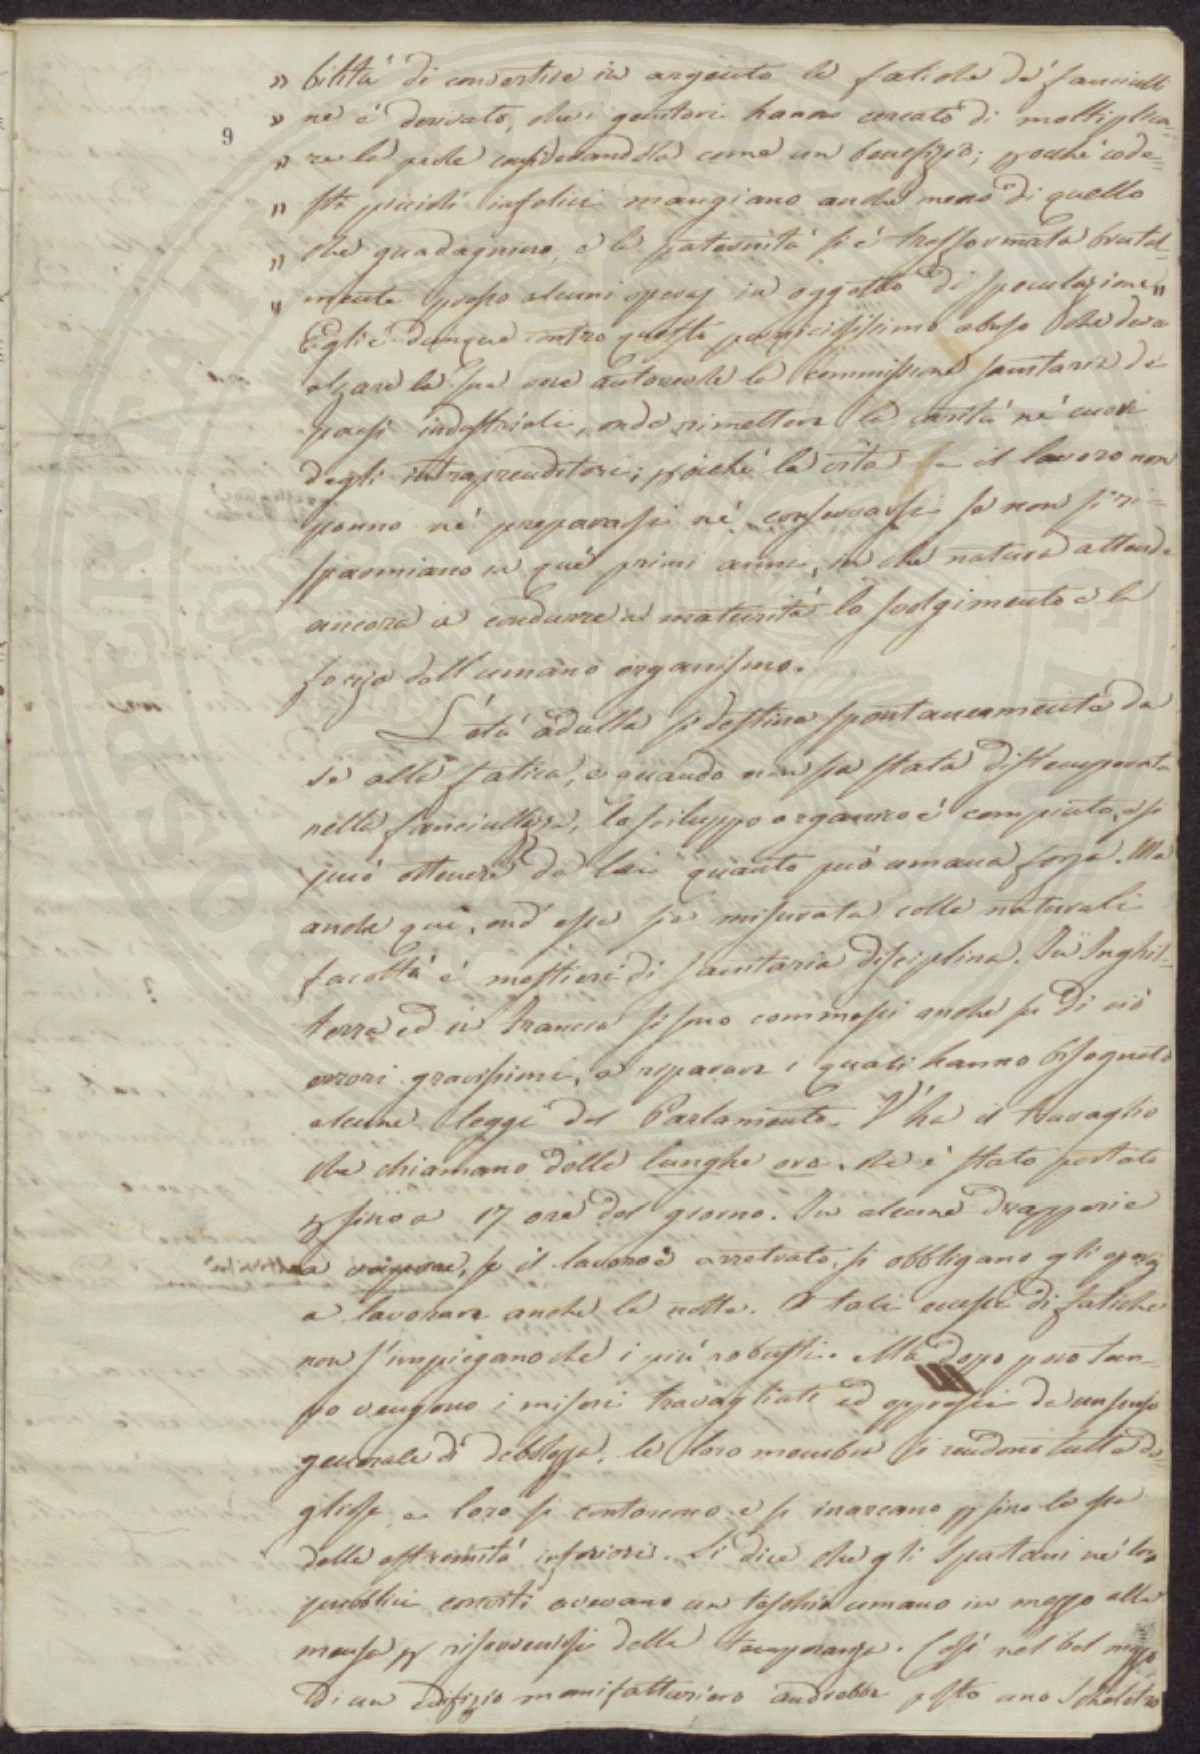 9
" bilità di convertire in argento le fatiche de' fanciulli
" ne è derivato, che i genitori hanno cercato di moltiplica=
" re la prole considerandola come un benefizio; poiché code=
" sti piccioli infelici mangiano anche meno di quello
" che guadagnano, e la paternità si è trasformata brutal=
" mente presso alcuni operaj in oggetto di speculazione"
Egli è dunque contro questo perniciosissimo abuso che deve
alzare la sua voce autorevole la Commissione sanitaria de'
paesi industriali, onde rimettere la carità ne' cuori
degli intraprenditori; poiché la vita e il lavoro non
ponno né prepararsi né conservarsi se non si ri=
sparmiano in que' primi anni, in che natura attende
ancora a condurre a maturità lo svolgimento e la
forza dell'umano organismo.
L'età adulta si destina spontaneamente da
se alla fatica, e quando non sia stata distemperata
nella fanciullezza, lo sviluppo organico è compiuto, e si
può ottenere da lei quanto può umana forza. Ma
anche qui, ond'essa sia misurata colle naturali
facoltà è mestieri di sanitaria disciplina. In Inghil=
terra ed in Francia si sono commessi anche su di ciò
errori gravissimi, a riparare i quali hanno bisognato
alcune legge del Parlamento. V'ha il travaglio
che chiamano delle lunghe ore, che è stato portato
persino a 17 ore del giorno. In alcune drapperie
a vapore, se il lavoro è arretrato, si obbligano gli operaj
a lavorare anche la notte. A tali eccessi di fatiche
non s'impiegano che i più robusti. Ma dopo poco tem=
po vengono i miseri travagliati ed oppressi da un senso
generale di debolezza, le loro membra si rendono tutte do=
gliose, e loro si contorcono e si inarcano persino le ossa
delle estremità inferiori. Si dice che gli Spartani ne' loro
pubblici conviti avevano un teschio umano in mezzo alla
mensa per risovvenirsi della temperanza. Così nel bel mezzo
di un edifizio manifatturiero andrebbe posto uno scheletro